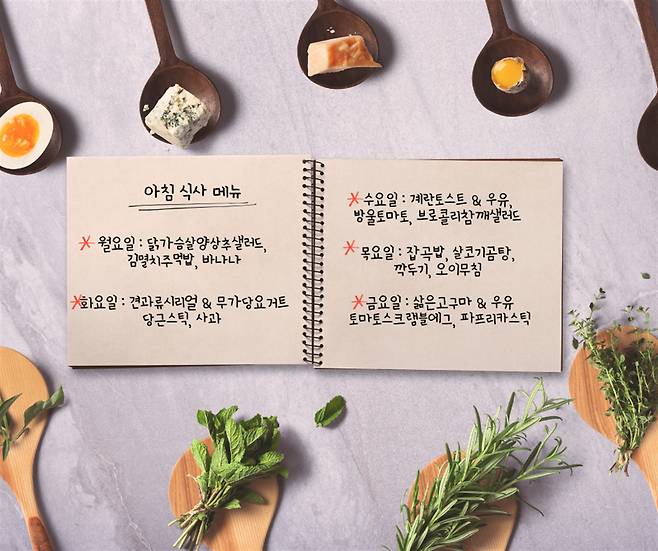 아침 식사 메뉴
* 월요일 : 닭가슴살양상추샐러드,
김멸치주먹밥, 바나나
* 화요일 : 견과류시리얼 & 무가당요거트
당근스틱, 사과
* 수요일 : 계란토스트 & 우유,
방울토마토, 브로콜리참깨샐러드
* 목요일 : 잡곡밥, 살코기곰탕,
깍두기, 오이무침
* 금요일 : 삶은고구마 & 우유
토마토스크램블에그, 파프리카스틱